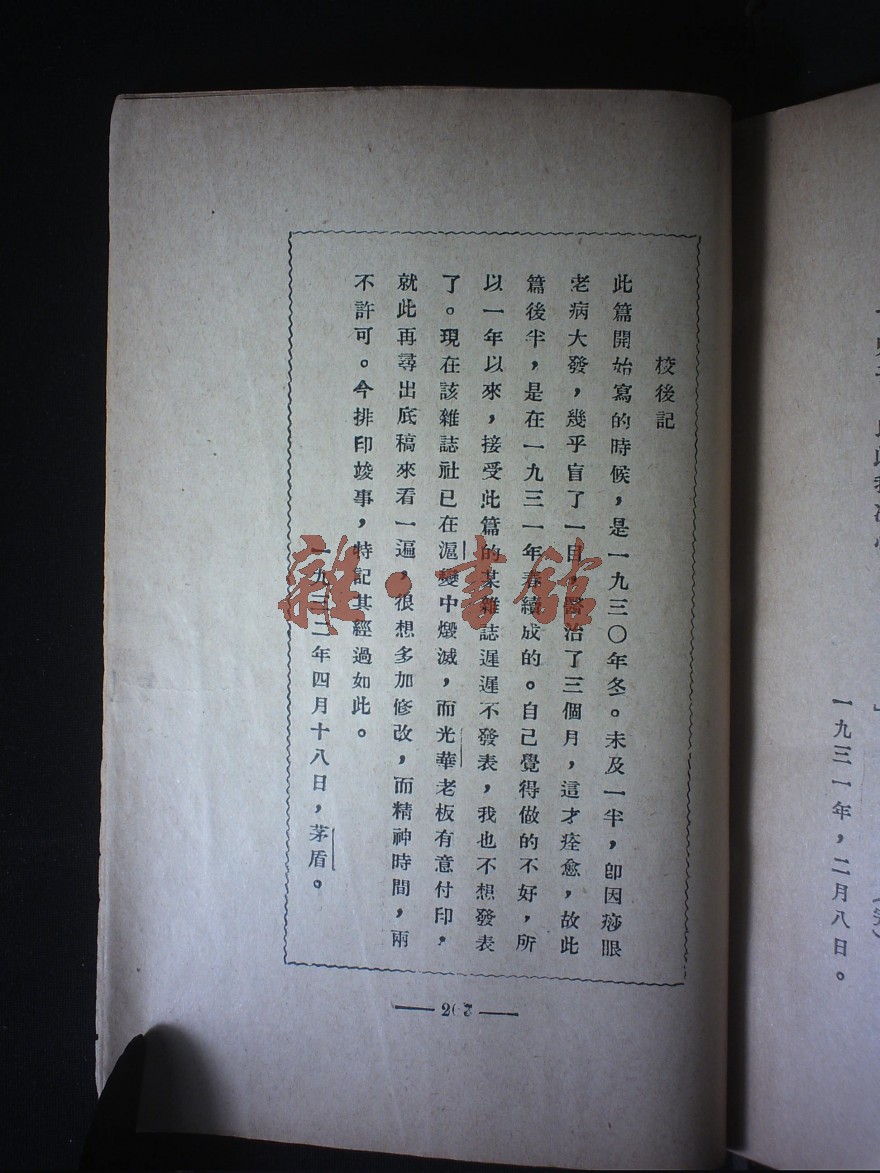 校後記
此篇開始寫的時候，是一九三〇年冬。未及一半，卽因痧眼
老病大發，幾乎盲了一目，醫治了三個月，這才痊愈，故此
篇後半，是在一九三一年春續成的。自己覺得做的不好，所
以一年以來，接受此篇的某雜誌遲遲不發表，我也不想發表
了。現在該雜誌社已在滬變中燬滅，而光華老板有意付印，
就此再尋出底稿來看一遍，很想多加修改，而精神時間，兩
不許可。今排印竣事，特記其經過如此。
一九三二年四月十八日，茅盾。
雜·書館
一九三一年，二月八日。